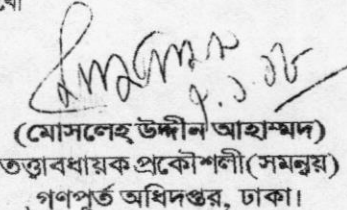 ৭.১.১৮
(মোসলেহ্ উদ্দীন আহাম্মদ)
তত্ত্বাবধায়ক প্রকৌশলী(সমন্বয়)
গণপূর্ত অধিদপ্তর, ঢাকা।